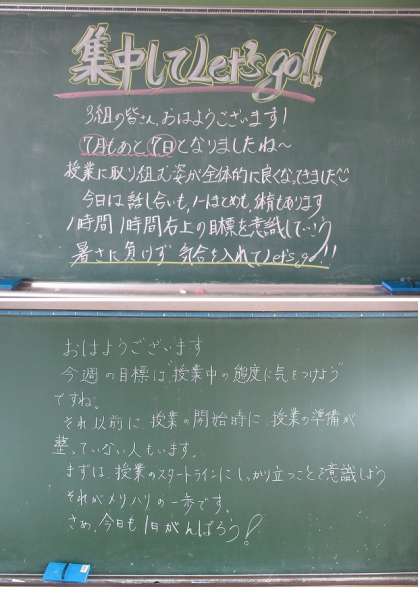 集中してLet's go!!
3組の皆さん、おはようございます!
7月もあと7日となりましたね〜
授業に取り組む姿が全体的に良くなってきました
今日は話し合いも、
1時間1時間右上の目標を意識して…!
暑さに負けず気合を入れてLet's go!!
おはようございます
今週の目標は授業中の態度に気をつけよう
ですね。
それ以前に、授業の開始時に、授業の準備が
整っていない人もいます。
まずは、授業のスタートラインにしっかり立つことを意識しよう
それがメリハリの一歩です。
さあ、今日も1日がんばろう!